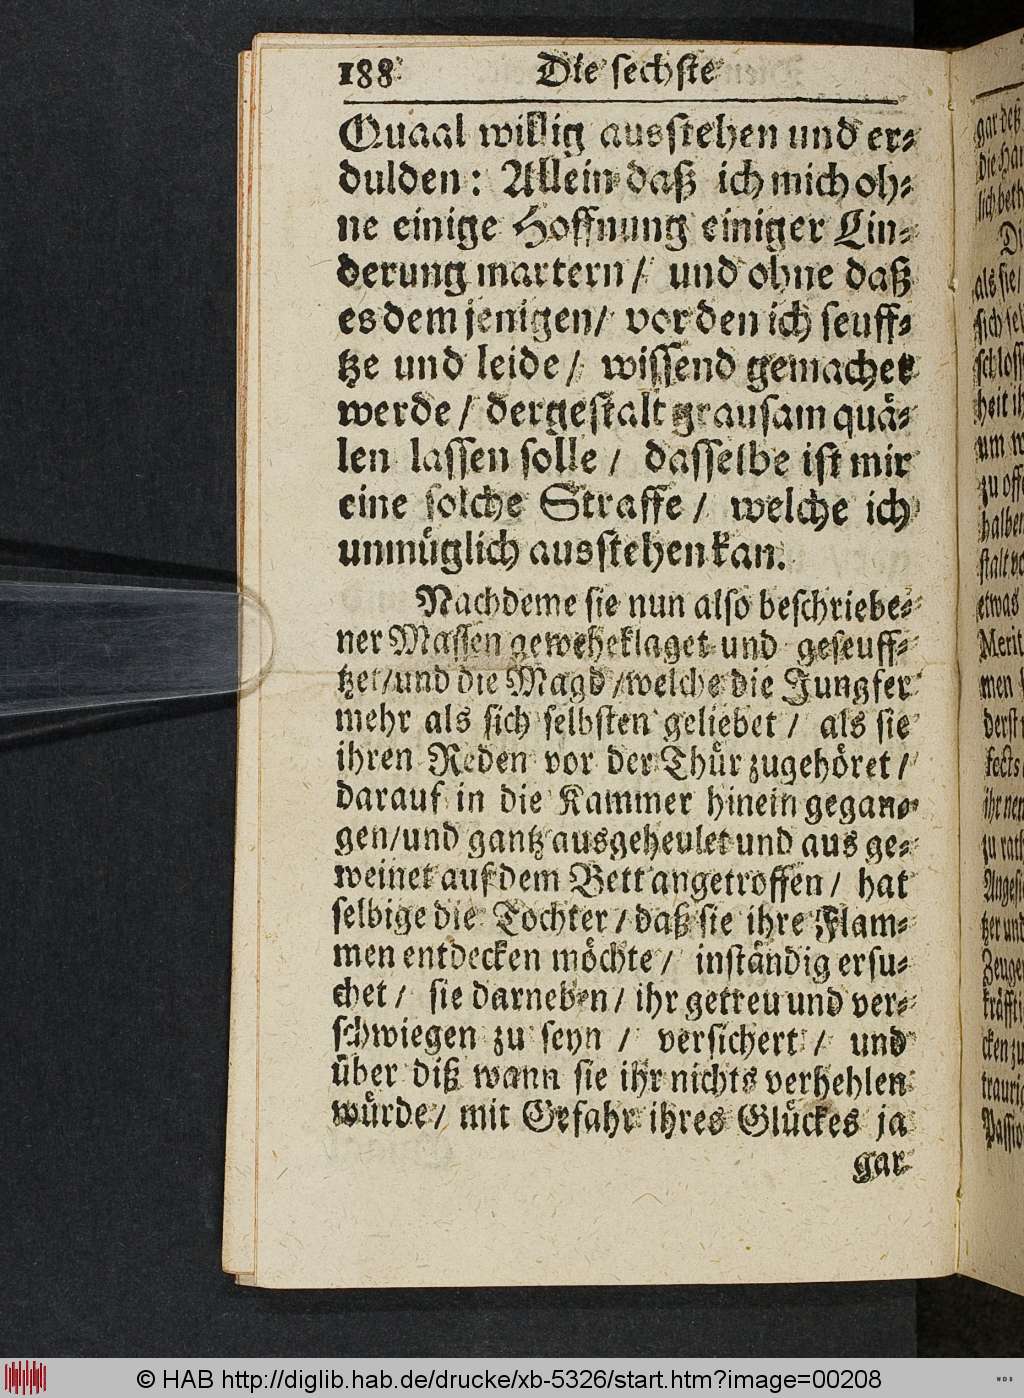 188 Die sechste
Quaal willig ausstehen und er-
dulden: Allein daß ich mich oh-
ne einige Hoffnung einiger Lin-
derung martern / und ohne daß
es dem jenigen / vor den ich seuff-
tze und leide / wissend gemachet
werde / dergestalt grausam quä-
len lassen solle / dasselbe ist mir
eine solche Straffe / welche ich
unmüglich ausstehen kan.
Nachdeme sie nun also beschriebe-
ner Massen geweheklaget und geseuff-
tzet / und die Magd / welche die Jungfer
mehr als sich selbsten geliebet / als sie
ihren Reden vor der Thür zugehöret /
darauf in die Kammer hinein gegan-
gen / und gantz ausgeheulet und aus ge-
weinet auf dem Bett angetroffen / hat
selbige die Tochter / daß sie ihre Flam-
men entdecken möchte / inständig ersu-
chet / sie darneben / ihr getreu und ver-
schwiegen zu seyn / versichert / und
über diß wann sie ihr nichts verhehlen
würde / mit Gefahr ihres Glückes ja
gar
gar deß
als sie /
um w
zu offe
halben
etwas
Merit
men
fects
zu rath
Zeugen
cken zu
Passio
© HAB http://diglib.hab.de/drucke/xb-5326/start.htm?image=00208